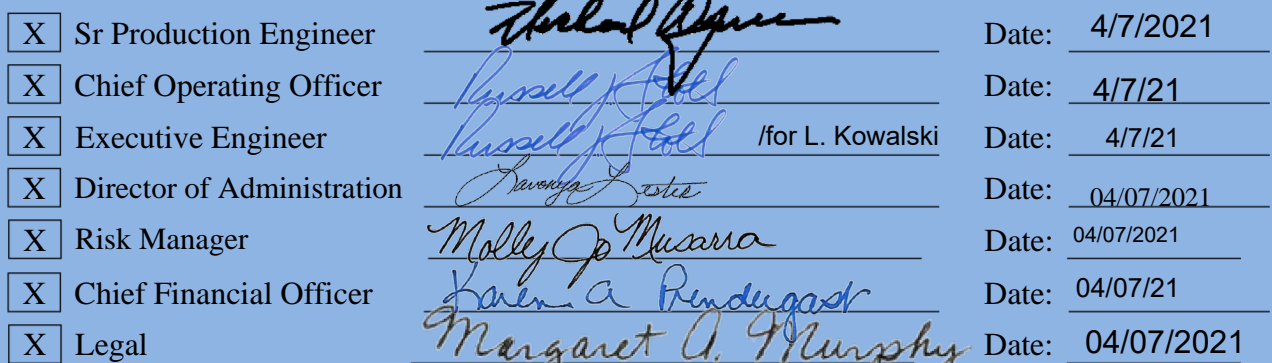 X Sr Production Engineer Date: 4/7/2021
X Chief Operating Officer Russell J Date: 4/7/21
X Executive Engineer Russell J /for L. Kowalski Date: 4/7/21
X Director of Administration Lavonya Lester Date: 04/07/2021
X Risk Manager Molly Jo Musarra Date: 04/07/2021
X Chief Financial Officer Karen A Prendergast Date: 04/07/21
X Legal Margaret A. Murphy Date: 04/07/2021